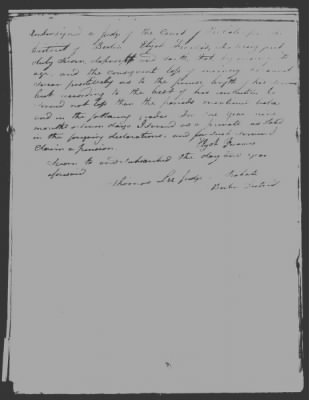 undersigned a judge of the Court of Probate for the
District of Berlin Elijah Francis, who being first
duly sworn, deposeth and saith, that by reason of his
age, and the consequent loss of memory he cannot
swear positively as to the precise length of his service
but according to the best of his recollection he
served not less than the periods mentioned below
and in the following grades. For one year nine
months & seven days I served as a private as stated
in the foregoing declarations, and for such service I
claim a pension.
Elijah Francis
Sworn to and subscribed the day and year
aforesaid
Thomas Lee Judge Probate
Berlin District